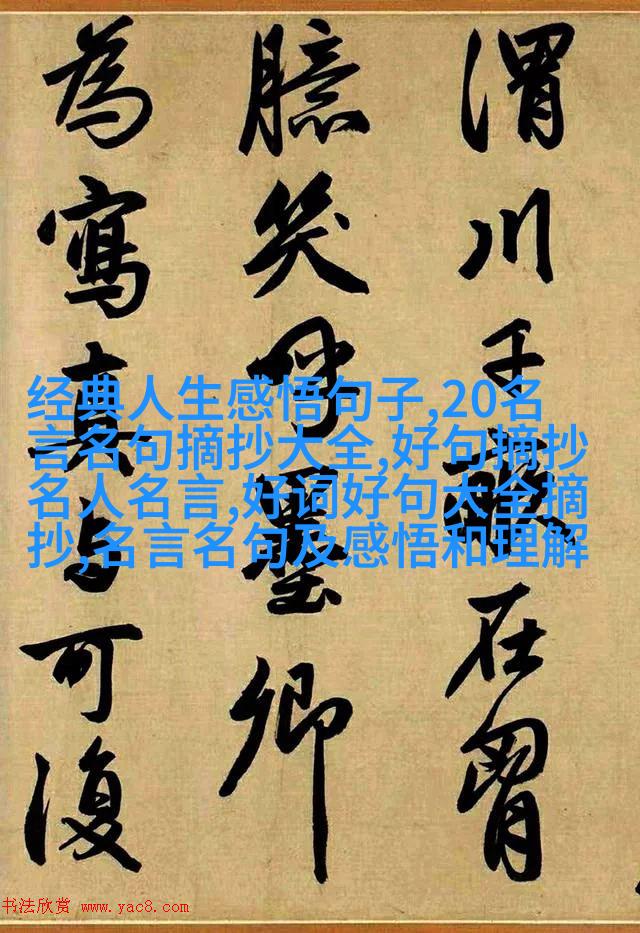 渭川千畝在胷
臆笑呼墨卿
為寫真与可復
经典人生感悟句子,20名
言名句摘抄大全,好句摘抄
名人名言,好词好句大全摘
抄,名言名句及感悟和理解
书法欣赏 www.yac8.com